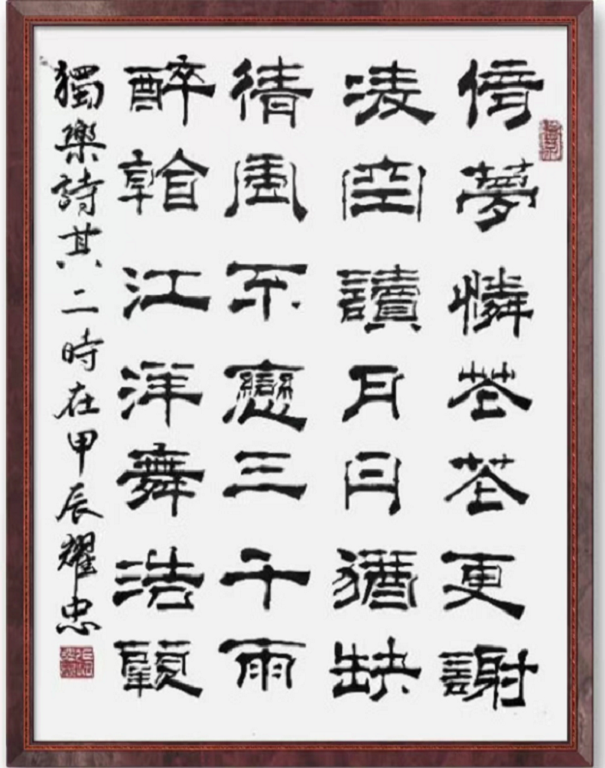 倚夢憐花花更謝
凌空讀月月猶缺
倩風不戀三千雨
醉翰江洋舞浩
獨樂詩其二時在甲辰耀忠